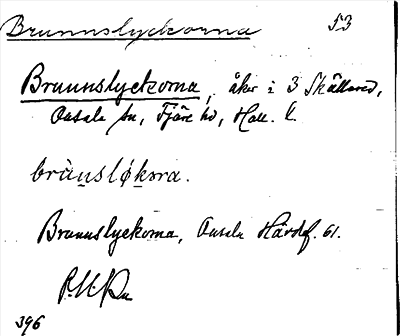 Brunnslyckorna 53
Brunnslyckorna, åker i 3 Skällared,
Onsala sn, Fjäre hd, Hall. l.
brùnsløkora.
Brunnslyckorna, Onsala Härdsf. 61.
396